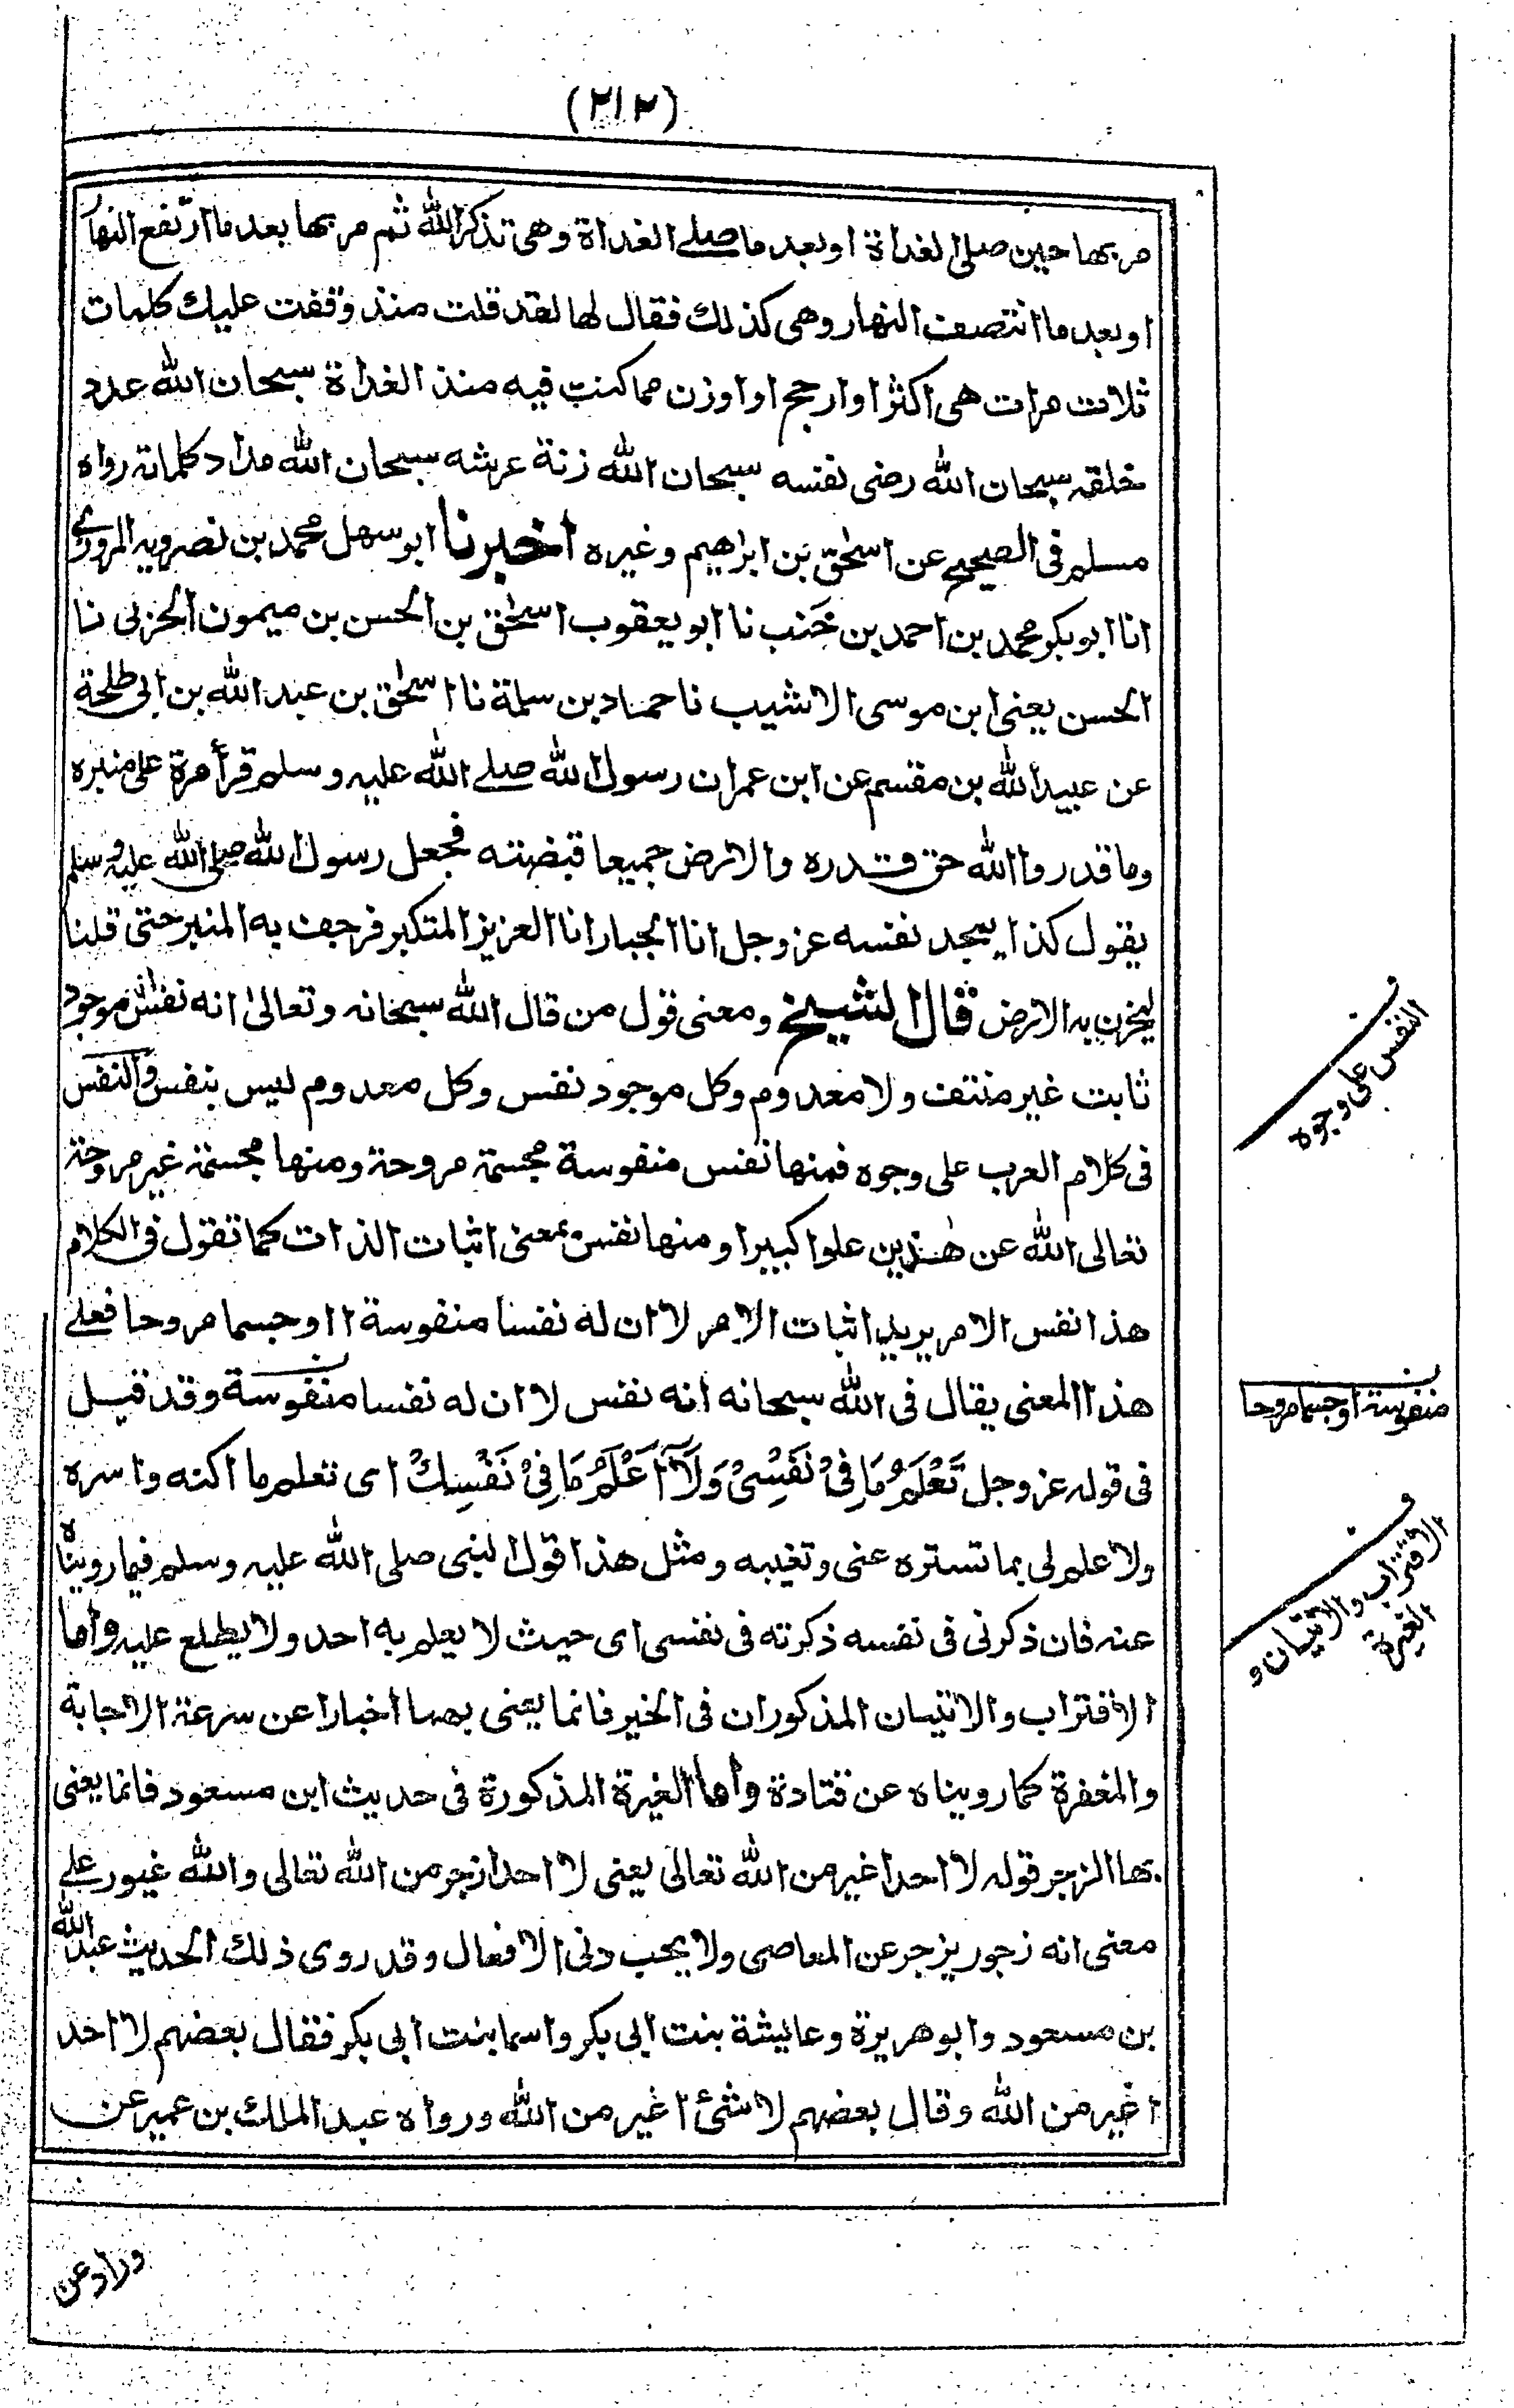 (۲۱۳)
مر بها حين صلى الغداة او بعد ما صلے الغداة وهى تذكر الله ثم مر بها بعد ما ارتفع النهار
او بعد ما انتصف النهار وهى كذلك فقال لها لقد قلت منذ وقفت عليك كلمات
ثلاث مرات هى اكثر او ارجح او اوزن مما كنت فيه منذ الغداة سبحان الله عدد
خلقه سبحان الله رضى نفسه سبحان الله زنة عرشه سبحان الله مداد كلماته رواه
مسلم فى الصحيح عن اسحٰق بن ابراهيم وغيره اخبرنا ابو سهل محمد بن نصرويه المروزى
انا ابو بكر محمد بن احمد بن خَنب نا ابو يعقوب اسحٰق بن الحسن بن ميمون الحزبى نا
الحسن يعنى ابن موسى الاشيب نا حماد بن سلمة نا اسحٰق بن عبد الله بن ابى طلحة
عن عبيد الله بن مقسم عن ابن عمر ان رسول الله صلے الله عليه وسلم قرأ مرة على منبره
وما قدروا الله حق قدره والارض جميعا قبضته فجعل رسول الله صلى الله عليه وسلم
يقول كذا يمجد نفسه عز وجل انا الجبار انا العزيز المتكبر فرجف به المنبر حتى قلنا
ليخرن به الارض قال الشيخ ومعنى قول من قال الله سبحانه وتعالىٰ انه نفس انه موجود
ثابت غير منتف ولا معدوم وكل موجود نفس وكل معدوم ليس بنفس والنفس
فى كلام العرب على وجوه فمنها نفس منفوسة مجسمة مروحة ومنها مجسمة غير مروحة
تعالى الله عن هٰذين علوا كبيرا ومنها نفس بمعنى اثبات الذات كما تقول فى الكلام
هذا نفس الامر يريد اثبات الامر لا ان له نفسا منفوسة ا او جسما مروحا فعلے
هذا المعنى يقال فى الله سبحانه انه نفس لا ان له نفسا منفوسة وقد قيل
فى قوله عز وجل تَعْلَمُ مَا فِىْ نَفْسِىْ وَلَآ اَعْلَمُ مَا فِىْ نَفْسِكَ اى تعلم ما اكنه واسره
ولا علم لى بما تستره عنى وتغيبه ومثل هذا قول النبى صلى الله عليه وسلم فيما رويناه
عنه فان ذكرنى فى نفسه ذكرته فى نفسى اى حيث لا يعلم به احد ولا يطلع عليه واما
الاقتراب والاتيان المذكوران فى الخبر فانما يعنى بهما اخبارا عن سرعة الاجابة
والمغفرة كما رويناه عن قتادة واما الغيرة المذكورة فى حديث ابن مسعود فانما يعنى
بها الزجر قوله لا احد اغير من الله تعالى يعنى لا احد ازجر من الله تعالى والله غيور علے
معنى انه زجور يزجر عن المعاصى ولا يحب دنى الافعال وقد روى ذلك الحديث عبد الله
بن مسعود وابو هريرة وعايشة بنت ابى بكر واسما بنت ابى بكر فقال بعضهم لا احد
اغير من الله وقال بعضهم لا شئ اغير من الله ورواه عبد الملك بن عمير عن
وراد عن
النفس على وجوه
منفوسة او جسما مروحا
الاقتراب والاتيان و
الغيرة